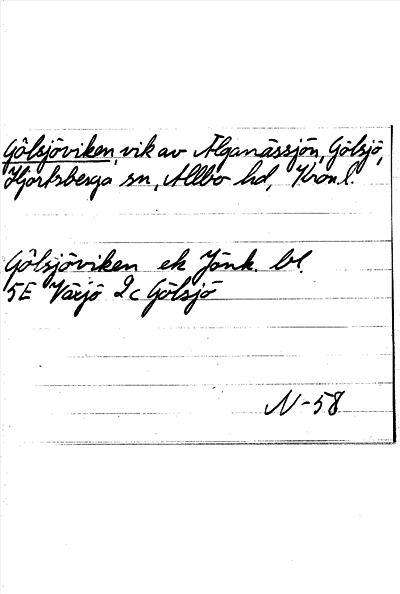 Gölsjöviken, vik av Älganässjön, Gölsjö,
Hjortsberga sn, Allbo hd, Kron.l.
Gölsjöviken ek Jönk. bl.
5E Växjö 2c Gölsjö
N-58